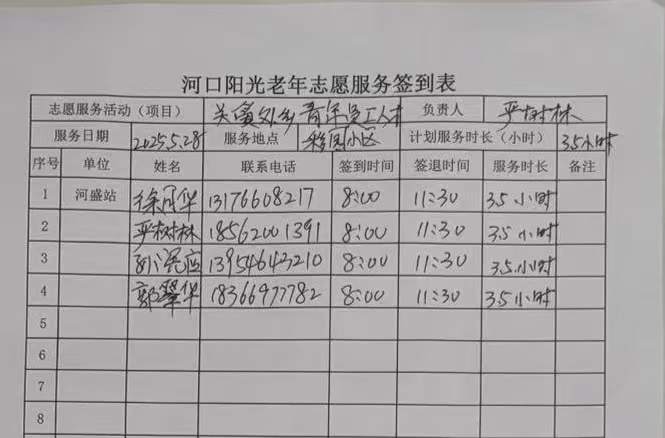 河口阳光老年志愿服务签到表
志愿服务活动（项目） 关爱外乡青年员工人才 负责人 严树林
服务日期 2025.5.28 服务地点 小区 计划服务时长（小时） 3.5小时
序号 单位 姓名 联系电话 签到时间 签退时间 服务时长 备注
1 河盛站 徐华 13176608217 8:00 11:30 3.5小时
2 严树林 18562001391 8:00 11:30 3.5小时
3 应 13954643210 8:00 11:30 3.5小时
4 郭翠华 18366977782 8:00 11:30 3.5小时
5
6
7
8